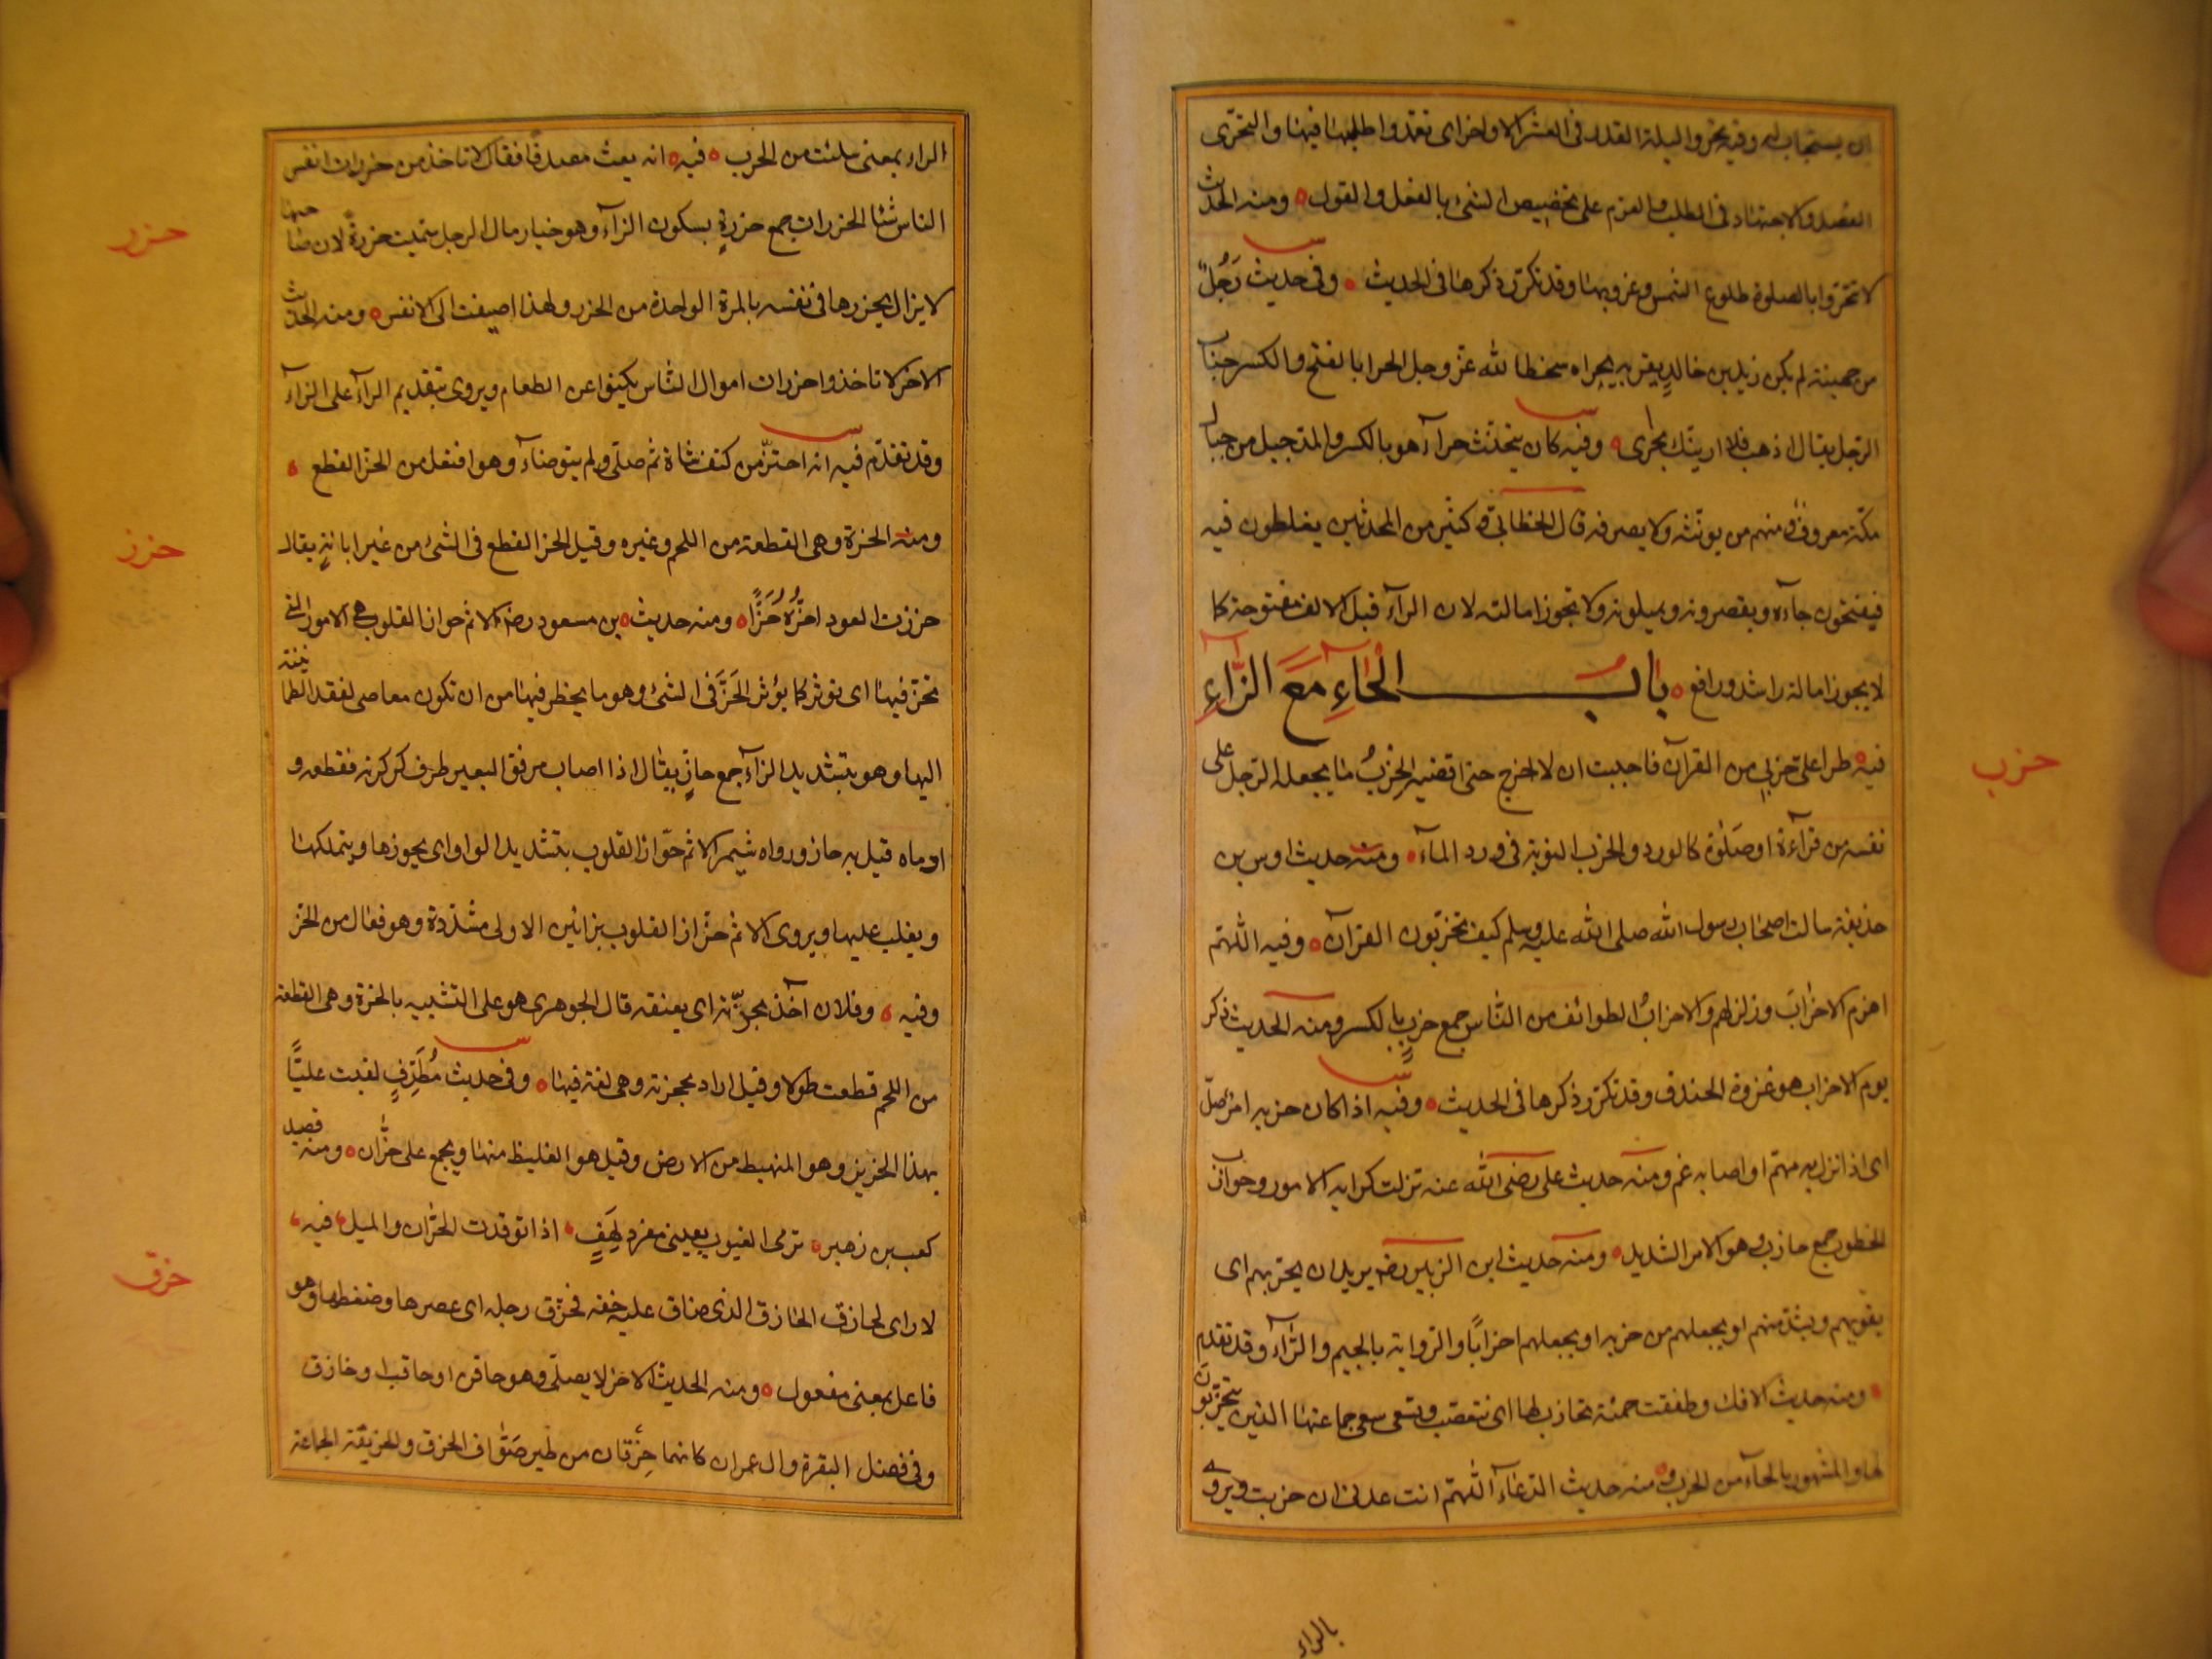 ان يستجاب له وفيه تحرّوا ليلة القدر فى العشر الاواخر اى تعمدوا طلبها فيها والتحرّى
القصد والاجتهاد فى الطلب والعزم على تخصيص الشئ بالفعل والقول ومنه الحديث
لا تتحرّوا بالصلوة طلوع الشمس وغروبها وقد تكرّر ذكرها فى الحديث وفى حديث رَجُلٍ
من جهينة لم يكن زيد بن خالدٍ يقربه بحراه سخطا لله عزّ وجل الحرا بالفتح والكسر جناب
الرّجل يقال اذهب فلا اريتك بحراى وفيه كان يتحنّث بحراء هو بالكسر والمد جبل من جبال
مكّة معروفٌ ومنهم من يونثه ولا يصرفه قال الخطابىّ وكثير من المحدثين يغلطون فيه
فيفتحون حاءه ويقصرونه ويميلونه ولا تجوز امالته لان الراء قبل الالف مفتوحة كما
لا يجوز امالة راشد ورافع باب الْحَاءِ مَعَ الزَّاءِ
حزب
فيه طرا علىّ حزبى من القرآن فاحببت ان لا اخرج حتى اقضيه الحِزْبُ ما يجعله الرّجل على
نفسه من قراءة او صَلٰوة كالورد والحزب النوبة فى ورد الماء ومنه حديث اوس بن
حذيفة سالت اصحاب رسول الله صلى الله عليه وسلم كيف تحزّبون القرآن وفيه اللّهمّ
اهزم الاحزابَ وزلزلهم والاحزابُ الطوائف من النّاس جمع حزبٍ بالكسر ومنه الحديث ذكر
يوم الاحزاب هو غزوة الخندق وقد تكرّر ذكرها فى الحديث وفيه اذا كان حزبه امرٌ صلّى
اى اذا نزل به مهمّ او اصابه غم ومنه حديث على رضى الله عنه نزلت كرايه الامور وحوازب
الخطوب جمع حازب وهو الامر الشديد ومنه حديث ابن الزبير رضه يريد ان يحزبهم اى
يقويهم ويشدّ منهم او يجعلهم من حزبه او يجعلهم احزابًا والرواية بالجيم والرّاء وقد تقدم
ومنه حديث الافك وطفقت حمنة تحازب لها اى تتعصّب وتسعى سعى جماعتها الذين يتحزّبون
لها والمشهور بالحاء من الحرب ومنه حديث الدّعاء اللّهمّ انت عدتى ان حزبت ويروى
بالراء
الراء بمعنى سلبت من الحرب فيه انه بعث مصدقًا فقال لا تاخذ من حزرات انفس
حزر
الناس شئا الحزرات جمع حزرةٍ بسكون الزاء وهو خيار مال الرجل سمّيت حزرةً لان صاحبها
لا يزال يحزرها فى نفسه بالمرة الواحدة من الحزر ولهذا اضيفت الى الانفس ومنه الحديث
الاخر لا تاخذوا حزرات اموال النّاس نكبوا عن الطعام ويروى بتقديم الراء على الزاء
وقد تقدّم فيه انه احتزّ من كتف شاة ثم صلّى ولم يتوضاء وهو افتعل من الحزّ القطع
حزز
ومنه الحزة وهى القطعة من اللحم وغيره وقيل الحز القطع فى الشئ من غير ابانةٍ يقال
حززت العود احُزُّهُ حَزًّا ومنه حديث ابن مسعود رضه الاثم حواز القلوب هى الامور التى
تحزّ فيها اى توثر كما يؤثر الحَزّ فى الشئ وهو ما يخطر فيها من ان تكون معاصى لفقد الطمانينة
اليها وهو بتشديد الزاء جمع حازٍّ يقال اذا اصاب مرفق البعير طرف كركرته فقطعه و
ادماه قيل به حاز ورواه شمر الاثم حوّاز القلوب بتشديد الواو اى يحوزها ويتملكها
ويغلب عليها ويروى الاثم حزّاز القلوب بزائين الاولى مشدّدة وهو فعّال من الحز
وفيه وفلان اٰخذ بحزّته اى بعنقه قال الجوهرى هو على التشبيه بالحزة وهى القطعة
من اللحم قطعت طولا وقيل اراد بحجزته وهى لغة فيها وفى حديث مُطَرِّفٍ لقيت عليًّا
بهذا الحزيز وهو المنهبط من الارض وقيل هو الغليظ منها ويجمع على حزّان ومنه قصيد
كعب بن زهير ترمى الغيوب بعينى مفردٍ لَهِقٍ اذا توقدت الحزّان والميل فيه
حزق
لا راى لحازق الحازق الذى ضاق عليه خفه فحزق رجله اى عصرها وضغطها وهو
فاعل بمعنى مفعول ومنه الحديث الاخر لا يصلّى وهو حاقن او حاقب او حازق
وفى فضل البقرة وال عمران كانهما حِزْقان من طير صَوّاف الحزق والحزيقة الجماعة